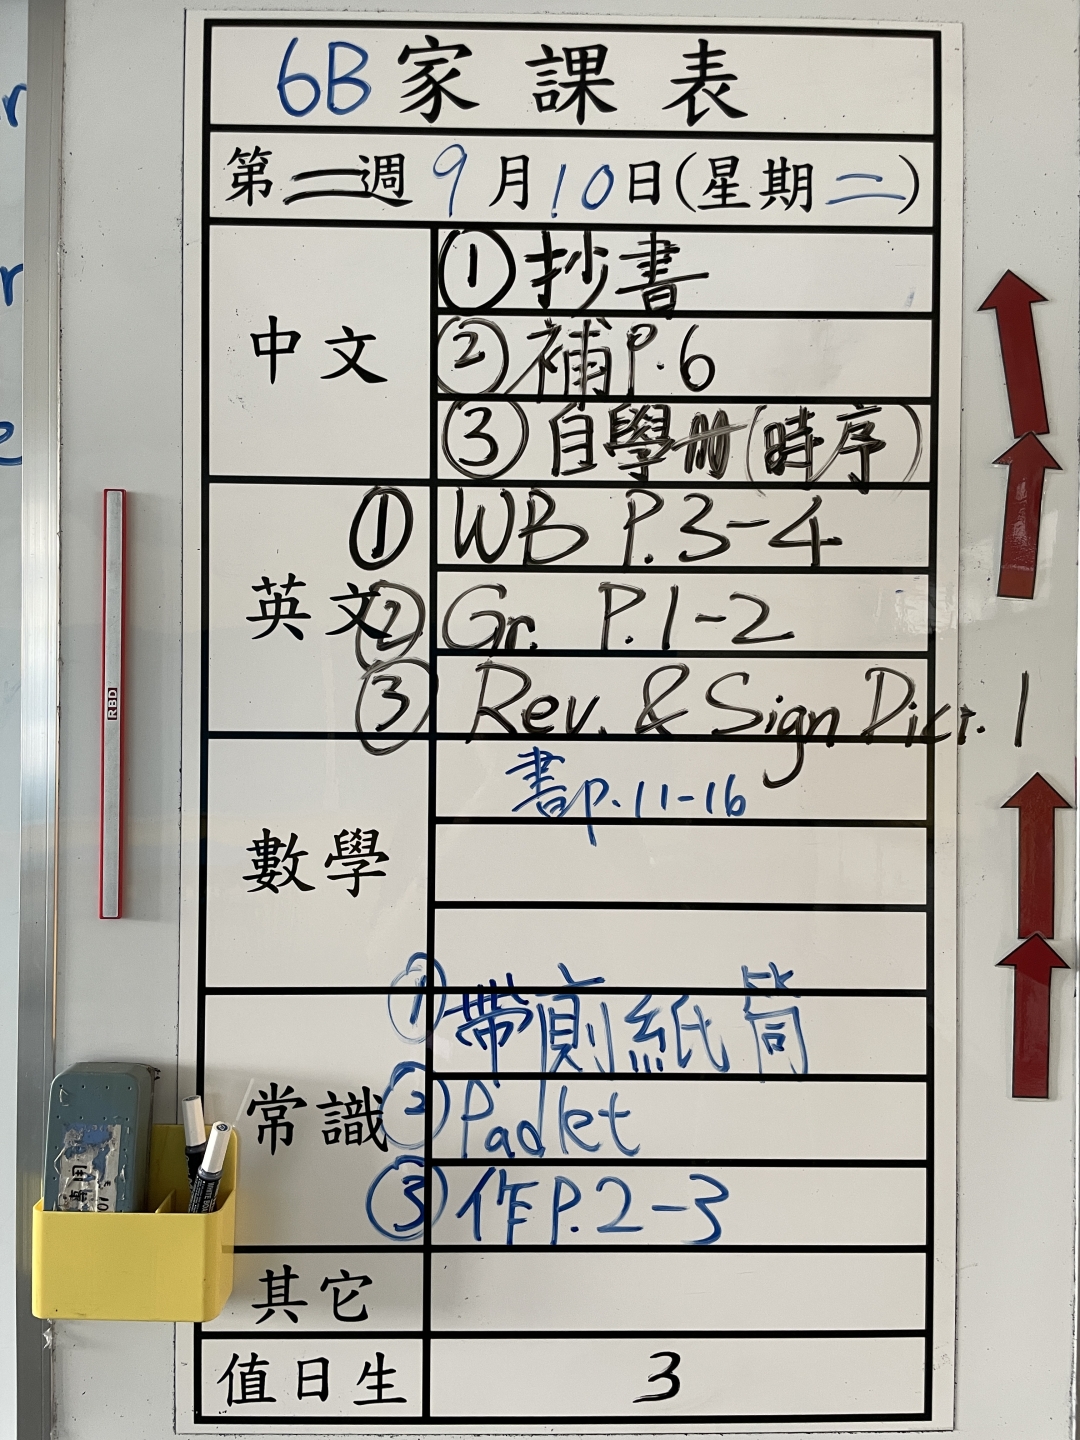 6B家課表
第二週9月10日(星期二)
中文
①抄書
②補P.6
③自學冊(時序)
英文
①WB P.3-4
②Gr. P.1-2
③Rev. & Sign Dict. 1
數學
書p.11-16
常識
①帶廁紙筒
②Padlet
③作P.2-3
其它
值日生
3
RBD
r
r
e